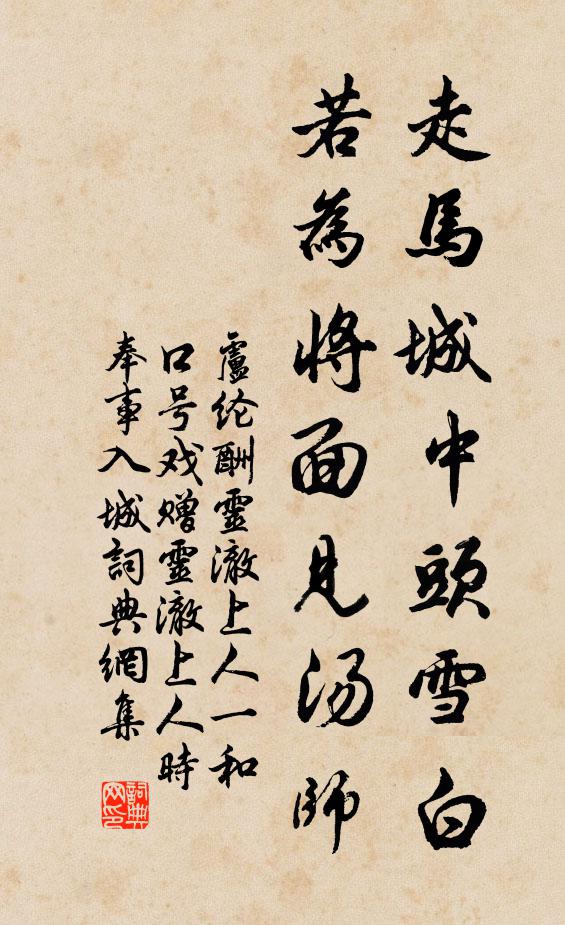 走馬城中頭雪白
若為將面見汤師
盧纶酬靈澈上人一和
口号戏赠靈澈上人時
奉事入城詞典網集
詞典网印